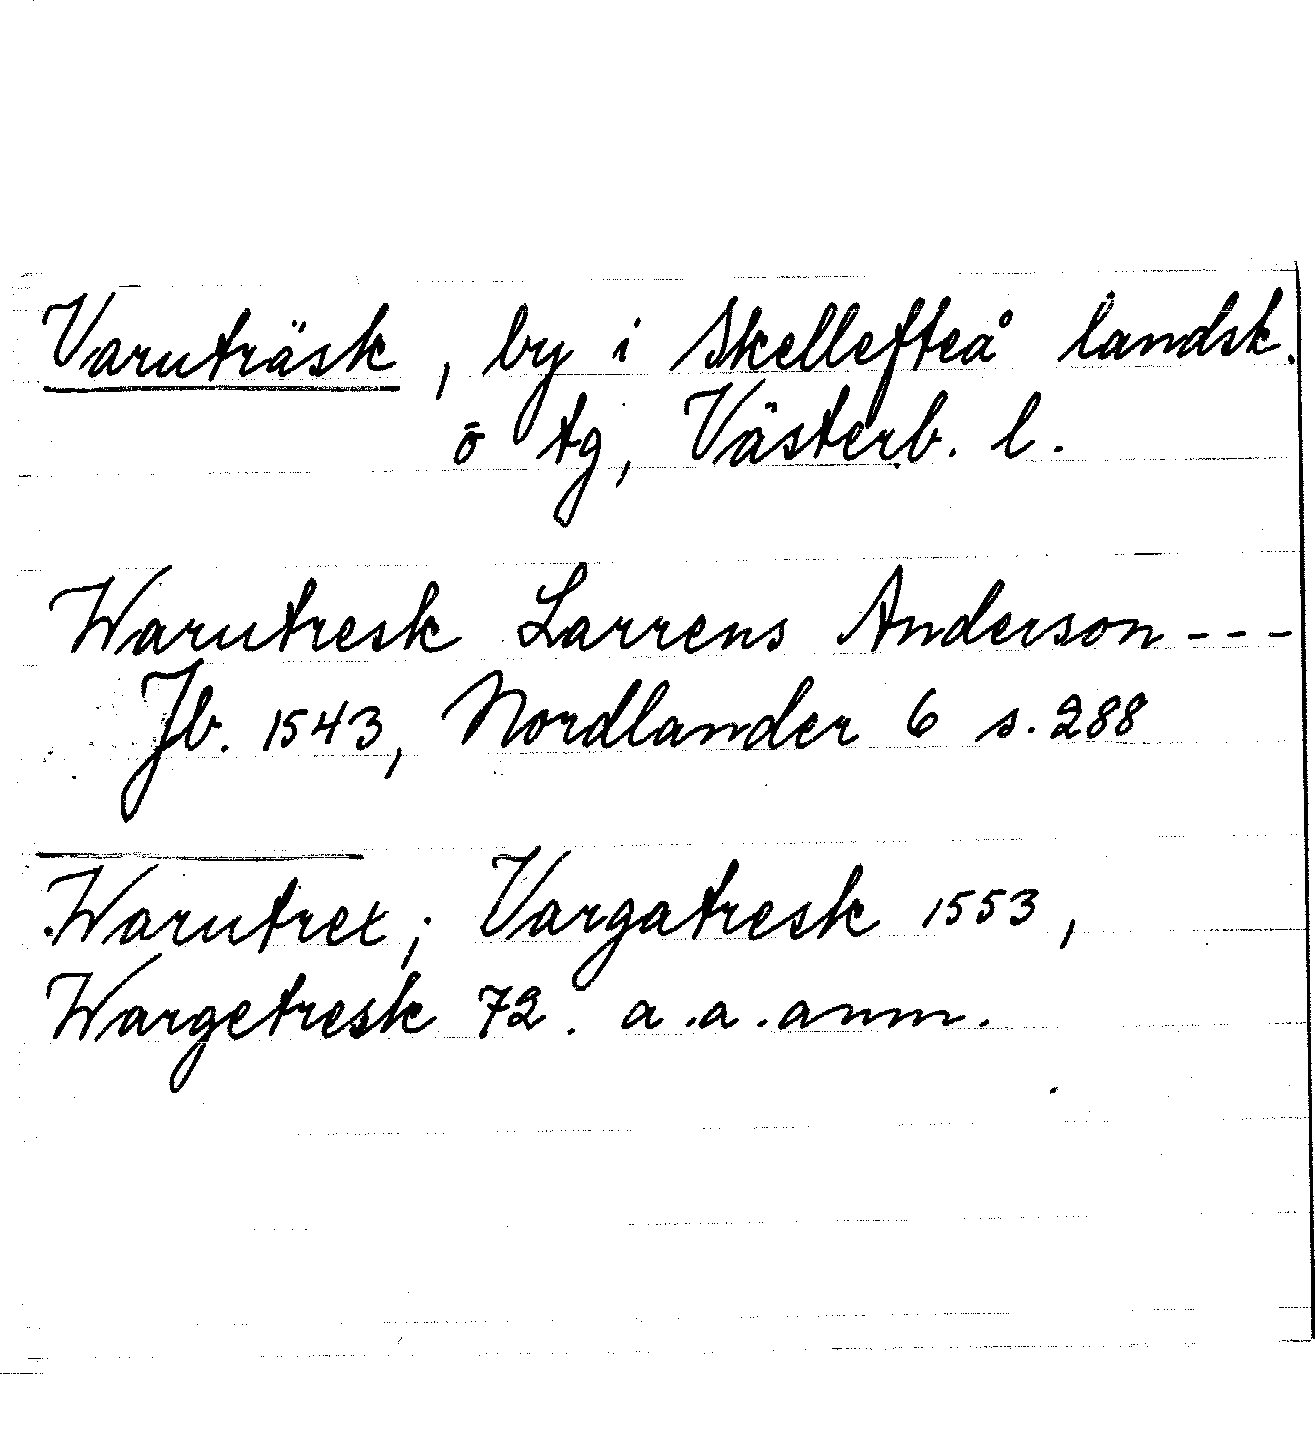 Varuträsk, by i Skellefteå landsk.
ö tg, Västerb. l.
Warutresk Larrens Anderson - - -
Jb. 1543, Nordlander 6 s. 288
Warutret; Vargatresk 1553,
Wargetresk 72. a.a. anm.